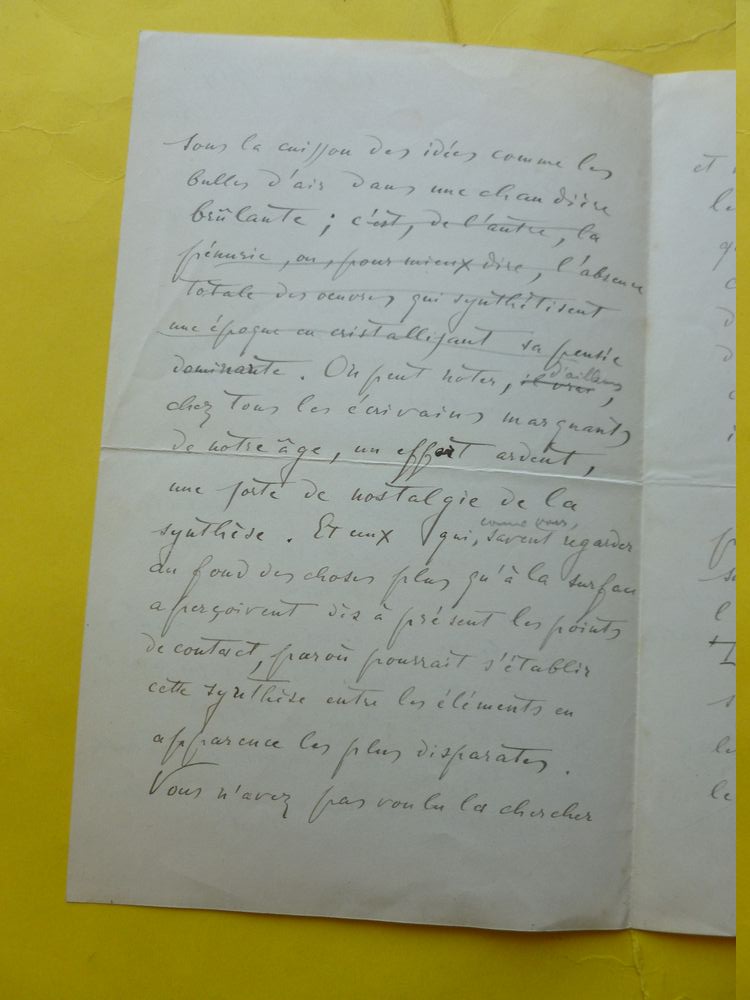 sous la cuisson des idées comme les
bulles d'air dans une chaudière
brûlante ; c'est, de l'autre, la
pénurie, ou, pour mieux dire, l'absence
totale des oeuvres qui synthétisent
une époque en cristallisant sa pensée
dominante. On peut noter, d'ailleurs,
chez tous les écrivains marquants
de notre âge, un effort ardent,
une sorte de nostalgie de la
synthèse. Et eux qui, comme vous, savent regarder
au fond des choses plus qu'à la surface
aperçoivent dès à présent les points
de contact, par où pourrait s'établir
cette synthèse entre les éléments en
apparence les plus disparates.
Vous n'avez pas voulu la chercher
et